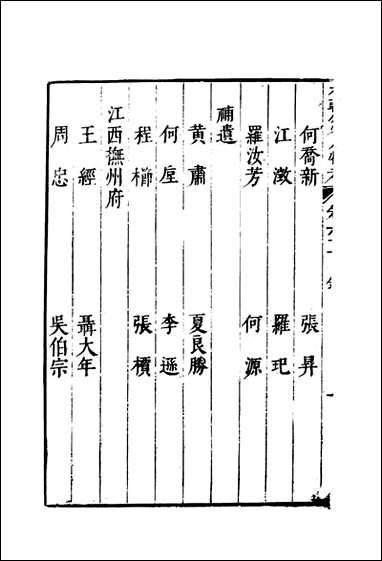 何喬新 張昇
江澂 羅玘
羅汝芳 何源
補遺
黃肅 夏良勝
何垕 李遜
程櫛 張檟
江西撫州府
王經 聶大年
周忠 吳伯宗